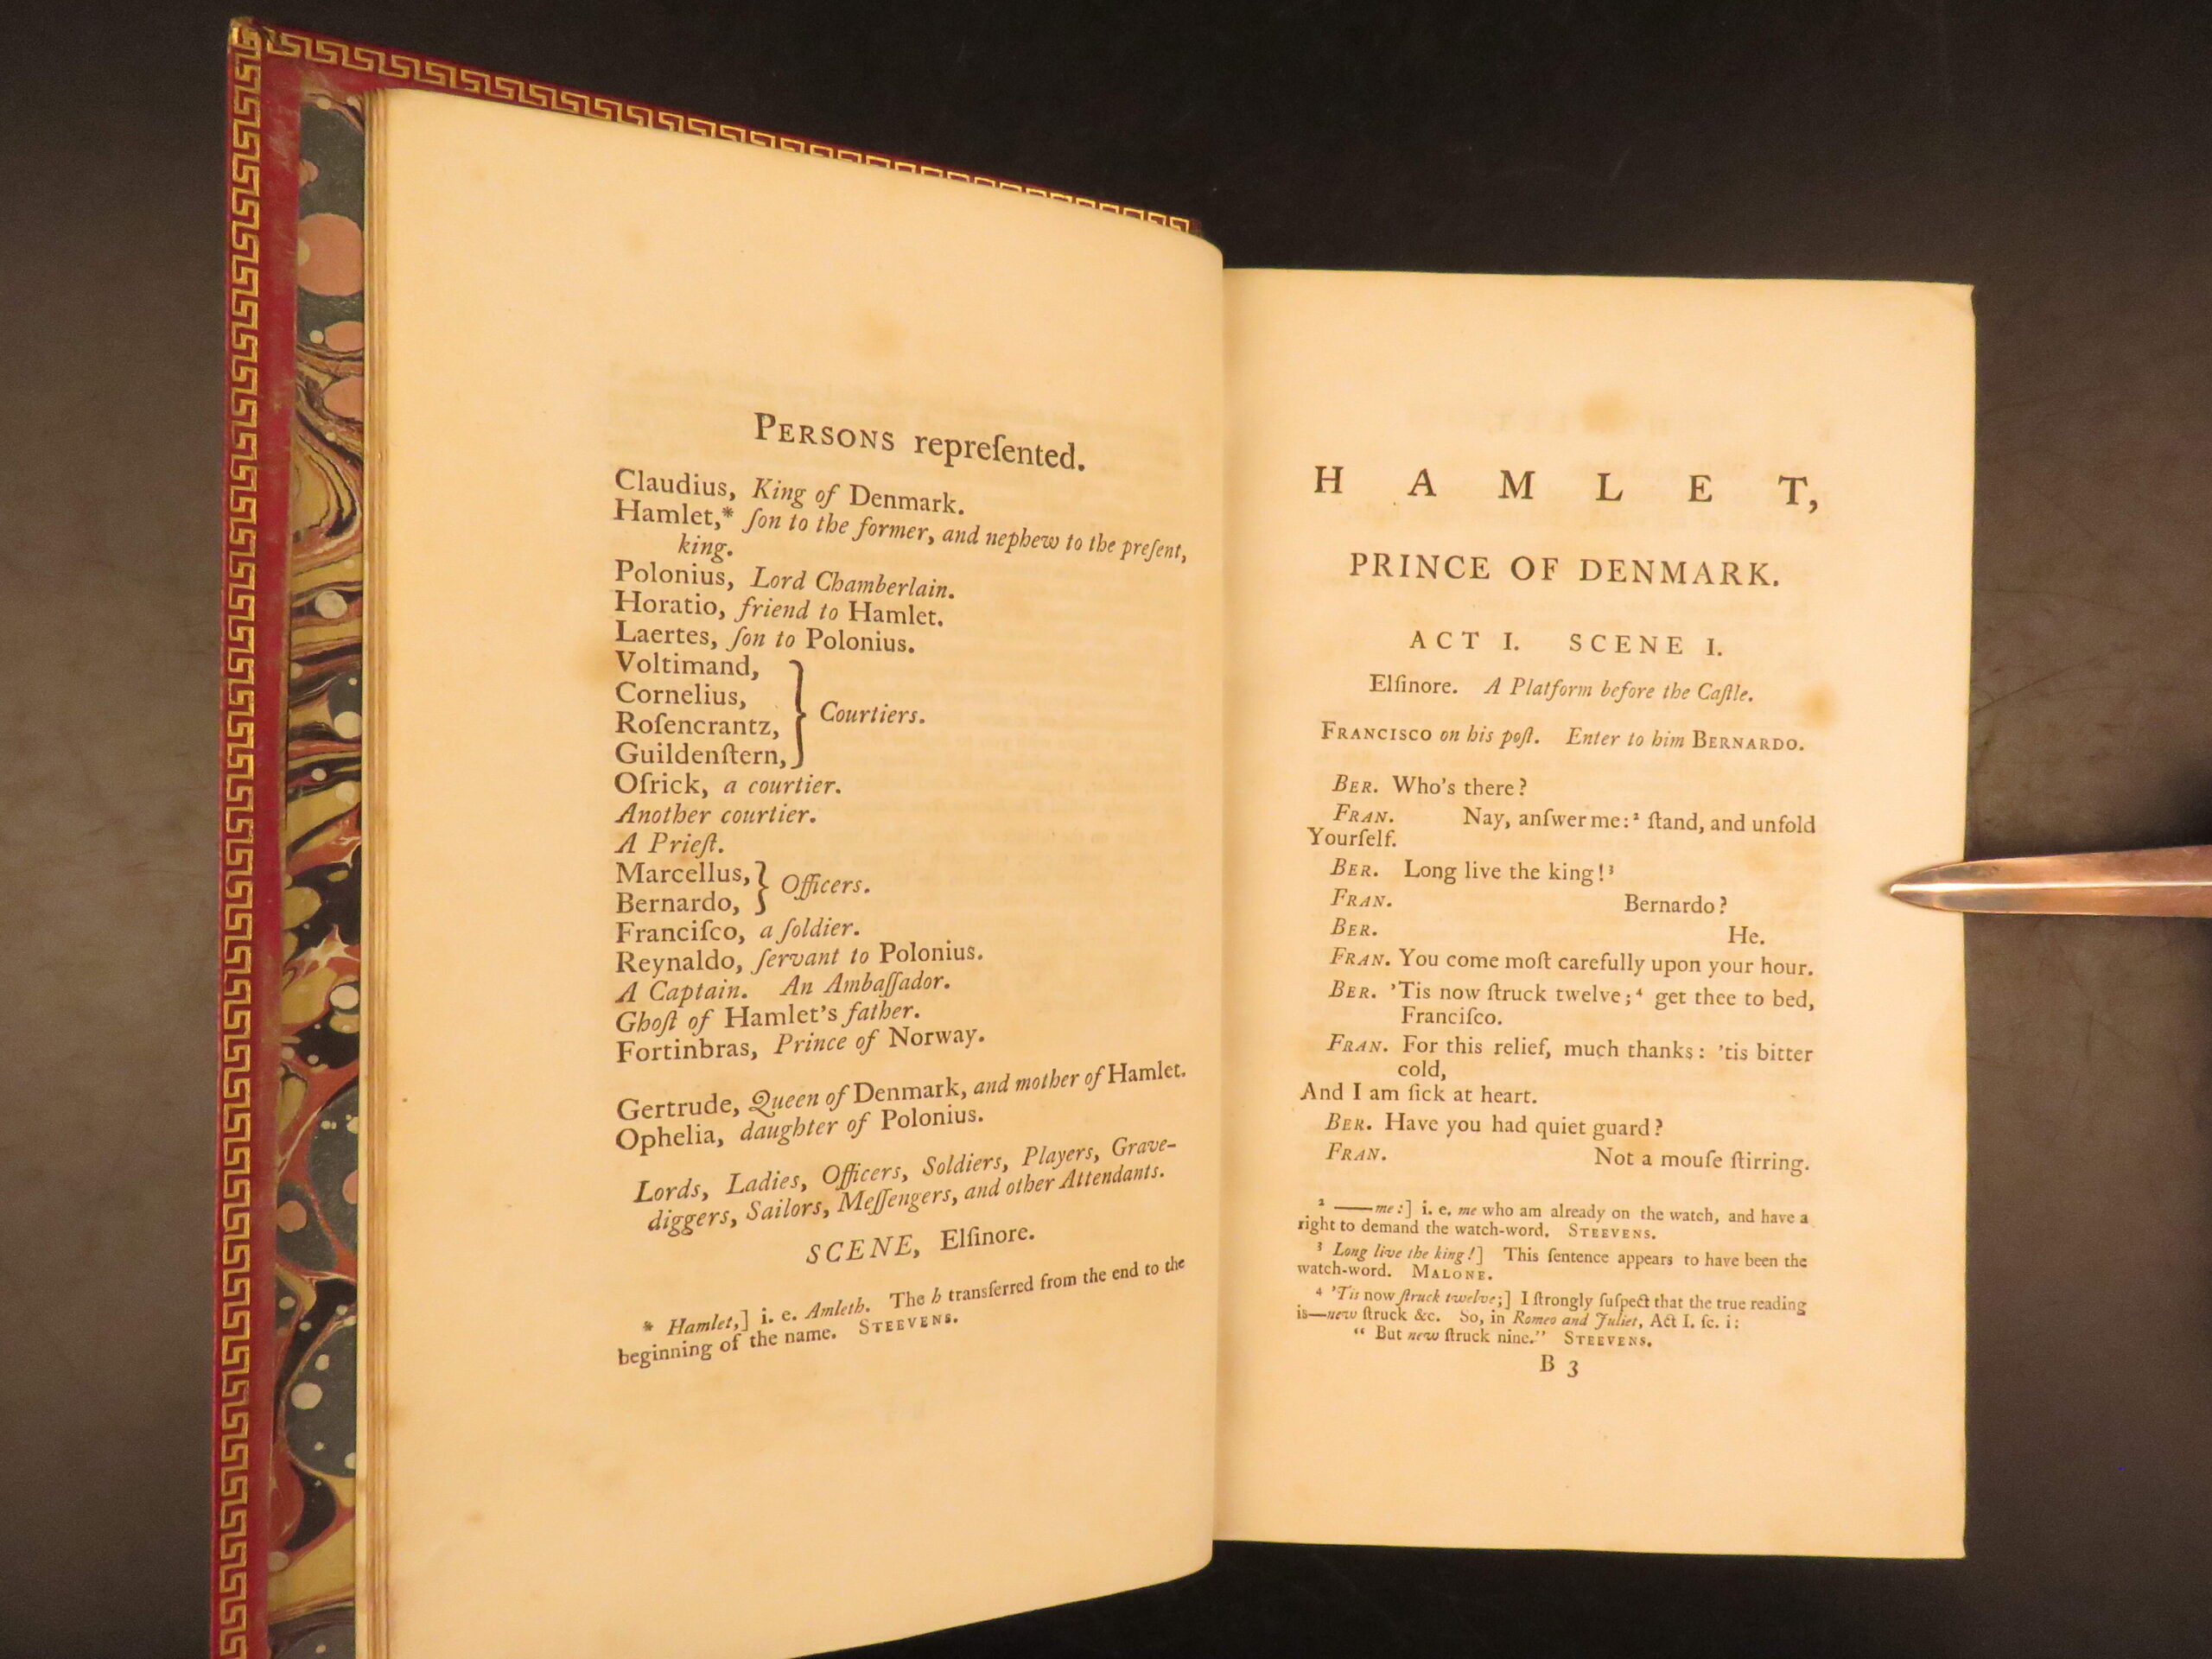 PERSONS repreſented.
Claudius, King of Denmark.
Hamlet,* ſon to the former, and nephew to the preſent,
king.
Polonius, Lord Chamberlain.
Horatio, friend to Hamlet.
Laertes, ſon to Polonius.
Voltimand,
Cornelius,
Roſencrantz,
Guildenſtern,
} Courtiers.
Oſrick, a courtier.
Another courtier.
A Prieſt.
Marcellus,
Bernardo,
} Officers.
Franciſco, a ſoldier.
Reynaldo, ſervant to Polonius.
A Captain. An Ambaſſador.
Ghoſt of Hamlet's father.
Fortinbras, Prince of Norway.
Gertrude, Queen of Denmark, and mother of Hamlet.
Ophelia, daughter of Polonius.
Lords, Ladies, Officers, Soldiers, Players, Grave-
diggers, Sailors, Meſſengers, and other Attendants.
SCENE, Elſinore.
* Hamlet,] i. e. Amleth. The h transferred from the end to the
beginning of the name. STEEVENS.
HAMLET,
PRINCE OF DENMARK.
ACT I. SCENE I.
Elſinore. A Platform before the Caſtle.
FRANCISCO on his poſt. Enter to him BERNARDO.
BER. Who's there?
FRAN. Nay, anſwer me:² ſtand, and unfold
Yourſelf.
BER. Long live the king!³
FRAN. Bernardo?
BER. He.
FRAN. You come moſt carefully upon your hour.
BER. 'Tis now ſtruck twelve;⁴ get thee to bed,
Franciſco.
FRAN. For this relief, much thanks: 'tis bitter
cold,
And I am ſick at heart.
BER. Have you had quiet guard?
FRAN. Not a mouſe ſtirring.
² ——me:] i. e. me who am already on the watch, and have a
right to demand the watch-word. STEEVENS.
³ Long live the king!] This ſentence appears to have been the
watch-word. MALONE.
⁴ 'Tis now ſtruck twelve;] I ſtrongly ſuſpect that the true reading
is—new ſtruck &c. So, in Romeo and Juliet, Act I. ſc. i:
“ But new ſtruck nine.” STEEVENS.
B 3